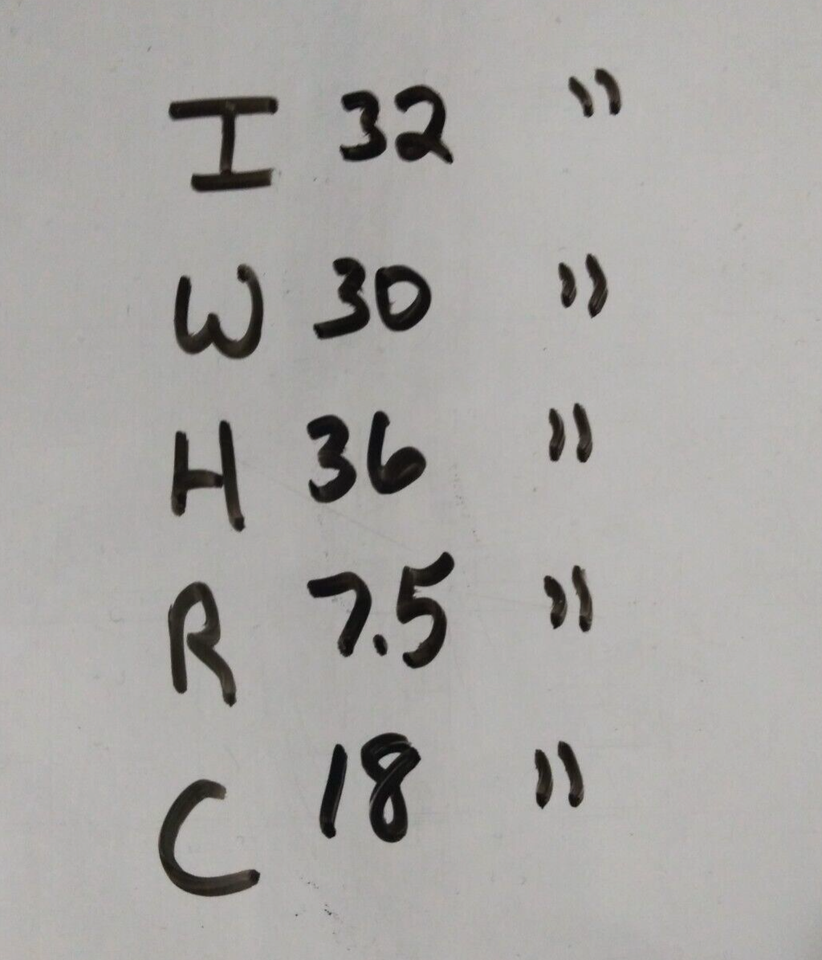 I 32 "
W 30 "
H 36 "
R 7.5 "
C 18 "